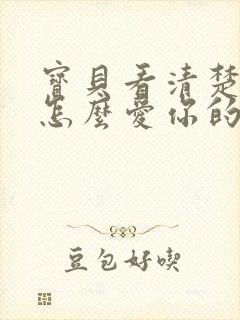 寶貝看清楚
怎麼愛你的
豆包好喫